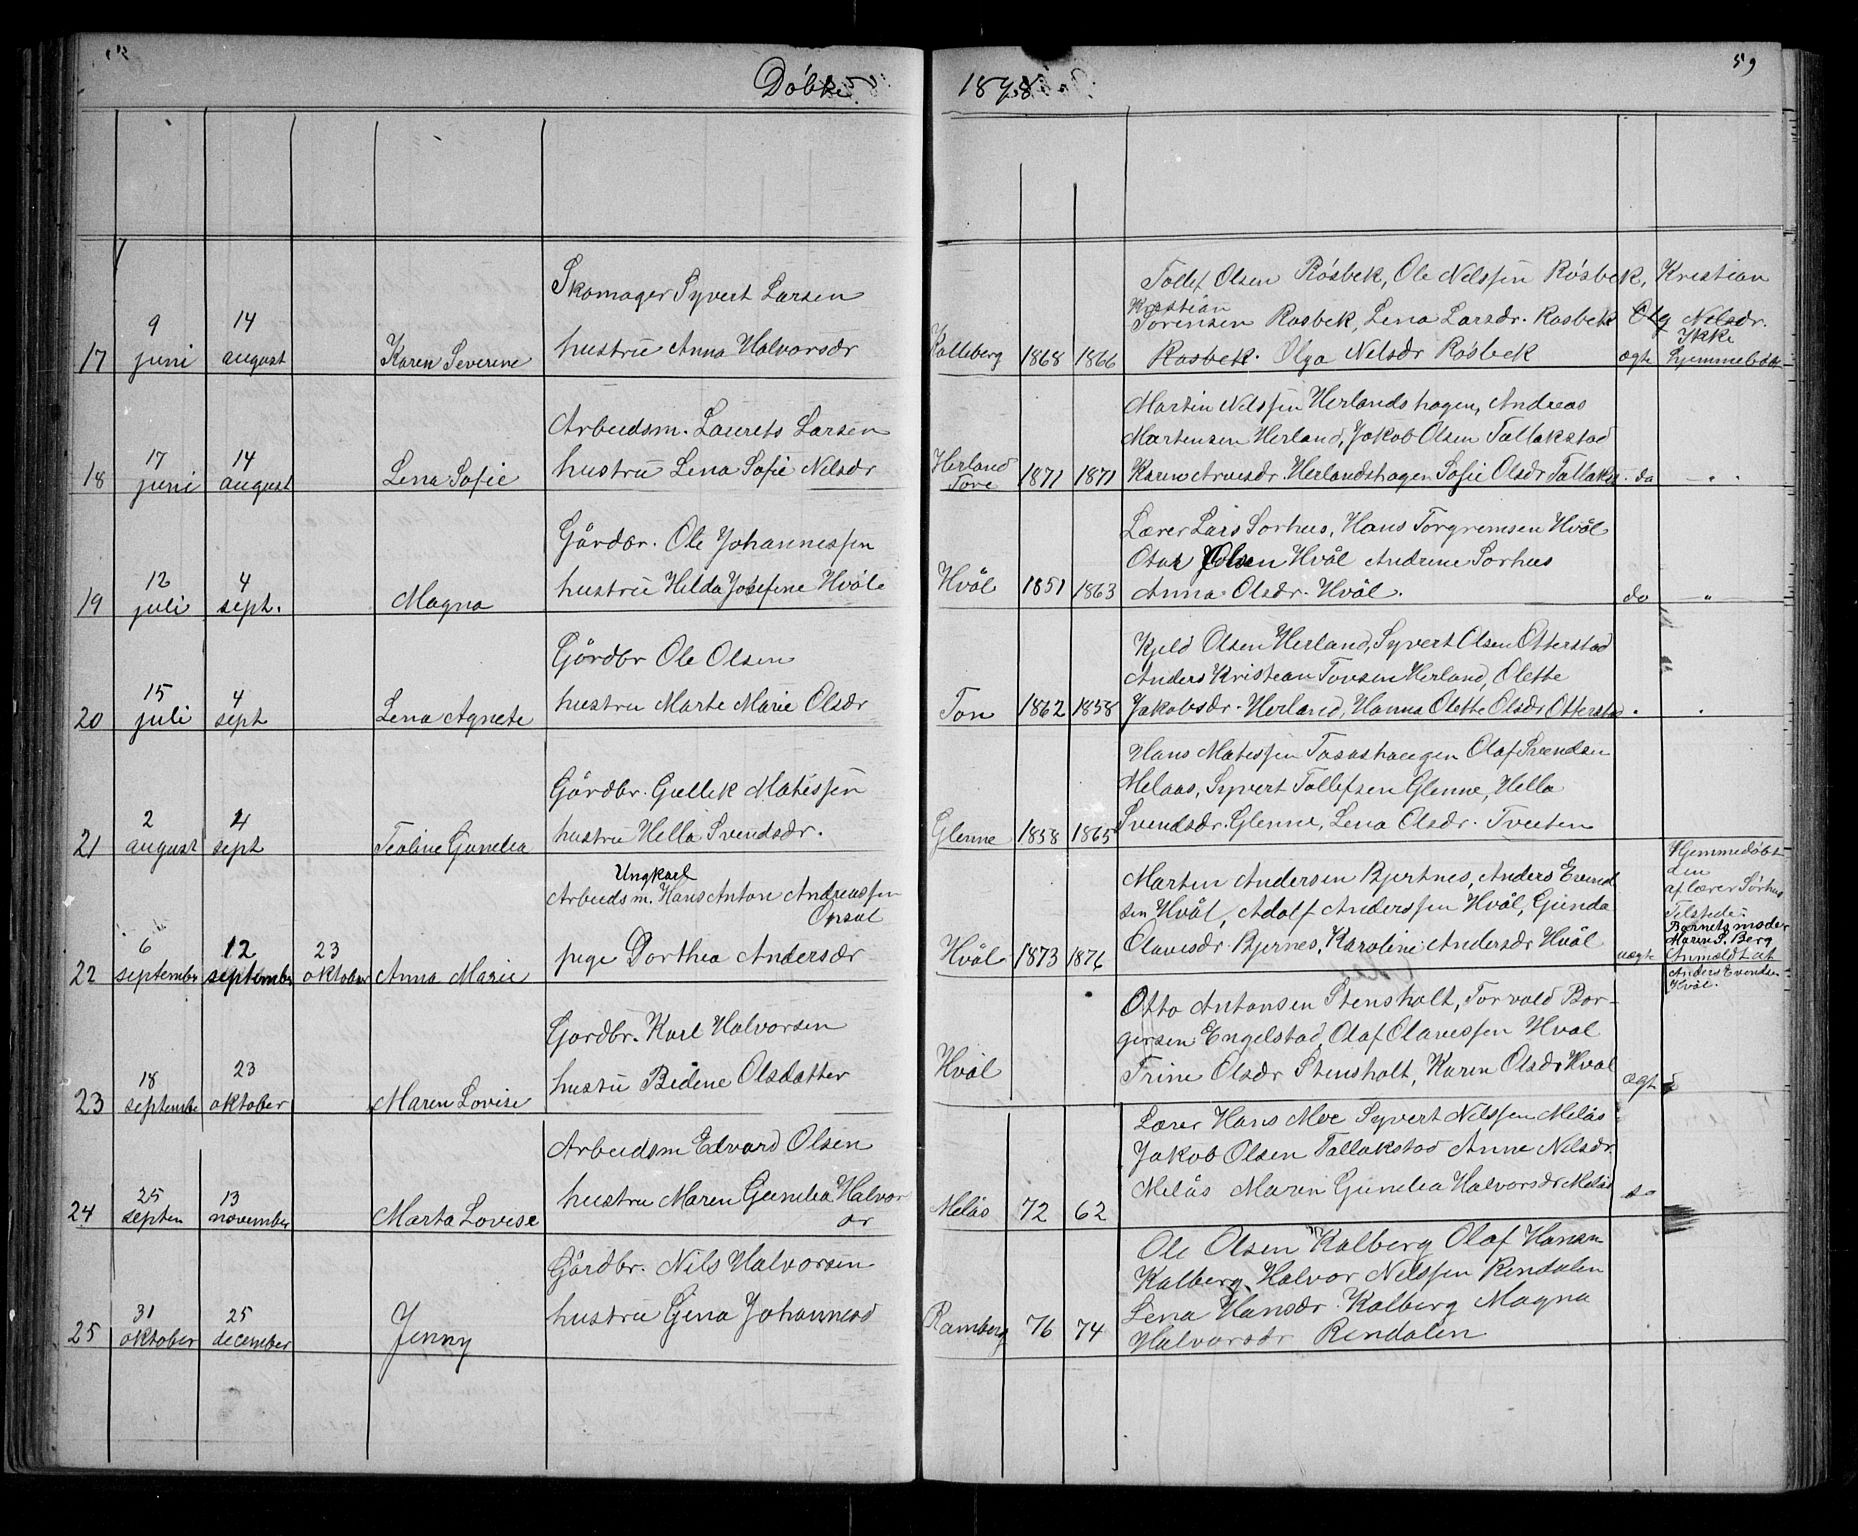 Döbte 1898
59
17
9 juni
14 august
Karen Severine
Skomager Syvert Larsen
hustru Anna Halvorsdr
Kalleberg
1868
1866
Tollef Olsen Rösbek, Ole Nelssen Rösbek, Kristian
Kristian
Sörensen Rosbek, Lena Larsdr. Rosbek Olg Nelsdr.
Rosbek. Olga Nelsdr Rösbek
ægte
Ikke
hjemmedöbt
18
17 juni
14 august
Lena Sofie
Arbeidsm. Laurets Larsen
hustru Lena Sofie Nelsdr
Herland
Tore
1871
1871
Martin Nelssen Herlandshagen, Andreas
Martensen Herland, Jakob Olsen Tallakstad
Karen Arnesdr. Herlandshagen Sofie Olsdr Tallaks
do
"
19
12 juli
4 sept.
Magna
Gårdbr. Ole Johannessen
hustru Hilda Josefine Hvåle
Hvål
1851
1863
Lærer Lars Sorhus, Hans Torgremsen Hvål
Olsen Hvål Andrine Sorhus
Anna Olsdr. Hvål.
do
"
20
15 juli
4 sept
Lena Agnete
Gårdbr Ole Olsen
hustru Marte Marie Olsdr
Ton
1862
1858
Kjeld Olsen Herland, Syvert Olsen Otterstad
Anders Kristian Tovsen Herland, Olette
Jakobsdr. Herland, Hanna Olette Olsdr Otterstad
"
"
21
2 august
4 sept
Teoline Gunelia
Gårdbr. Gullek Matissen
hustru Hella Svendsdr.
Glenne
1858
1865
Hans Matissen Olaf Svendsen
Melaas, Syvert Tollefsen Glenne, Hella
Svendsdr. Glenne, Lena Olsdr. Tveten
22
6 september
12 september
23 oktober
Anna Marie
Ungkarl
Arbeidsm. Hans Anton Andreassen
Opsal
pige Dorthea Andersdr
Hvål
1873
1876
Marten Andersen Bjertnes, Anders Evend
sen Hvål, Adolf Anderssen Hvål, Gunda
Olavesdr. Bjernes, Karoline Andersdr Hvål
uægte
Hjemmedöbt
den
af lærer Sörhus
Tilstede:
Barnets moder
Maren S. Berg
Anmeldt af
Anders Evendsen
Hvål.
23
18 septembe
23 oktober
Maren Lovise
Gardbr. Karl Halvorsen
hustu Bedine Olsdatter
Hvål
Otto Antonsen Stensholt, Torvald Bor-
gersen Engelstad, Olaf Olavessen Hval
Trine Olsdr Stensholt, Karen Olsdr Hval
ægt
24
25 septen
13 november
Marta Lovise
Arbeidsm Edvard Olsen
hustru Maren Gunelia Halvor
dr
Melås
72
62
Lærer Hans Moe Syvert Nelssen Melås
Jakob Olsen Tallakstad Anne Nelsdr.
Melås Maren Gunelia Halvorsdr Melås
do
25
31 oktober
25 december
Jenny
Gårdbr. Nils Halvorsen
hustru Gina Johannesd
Ramberg
76
74
Ole Olsen Kalberg Olaf Hansen
Kalberg, Halvor Nelssen Rendalen
Lena Hansdr. Kalberg Magna
Halvorsdr Rendalen